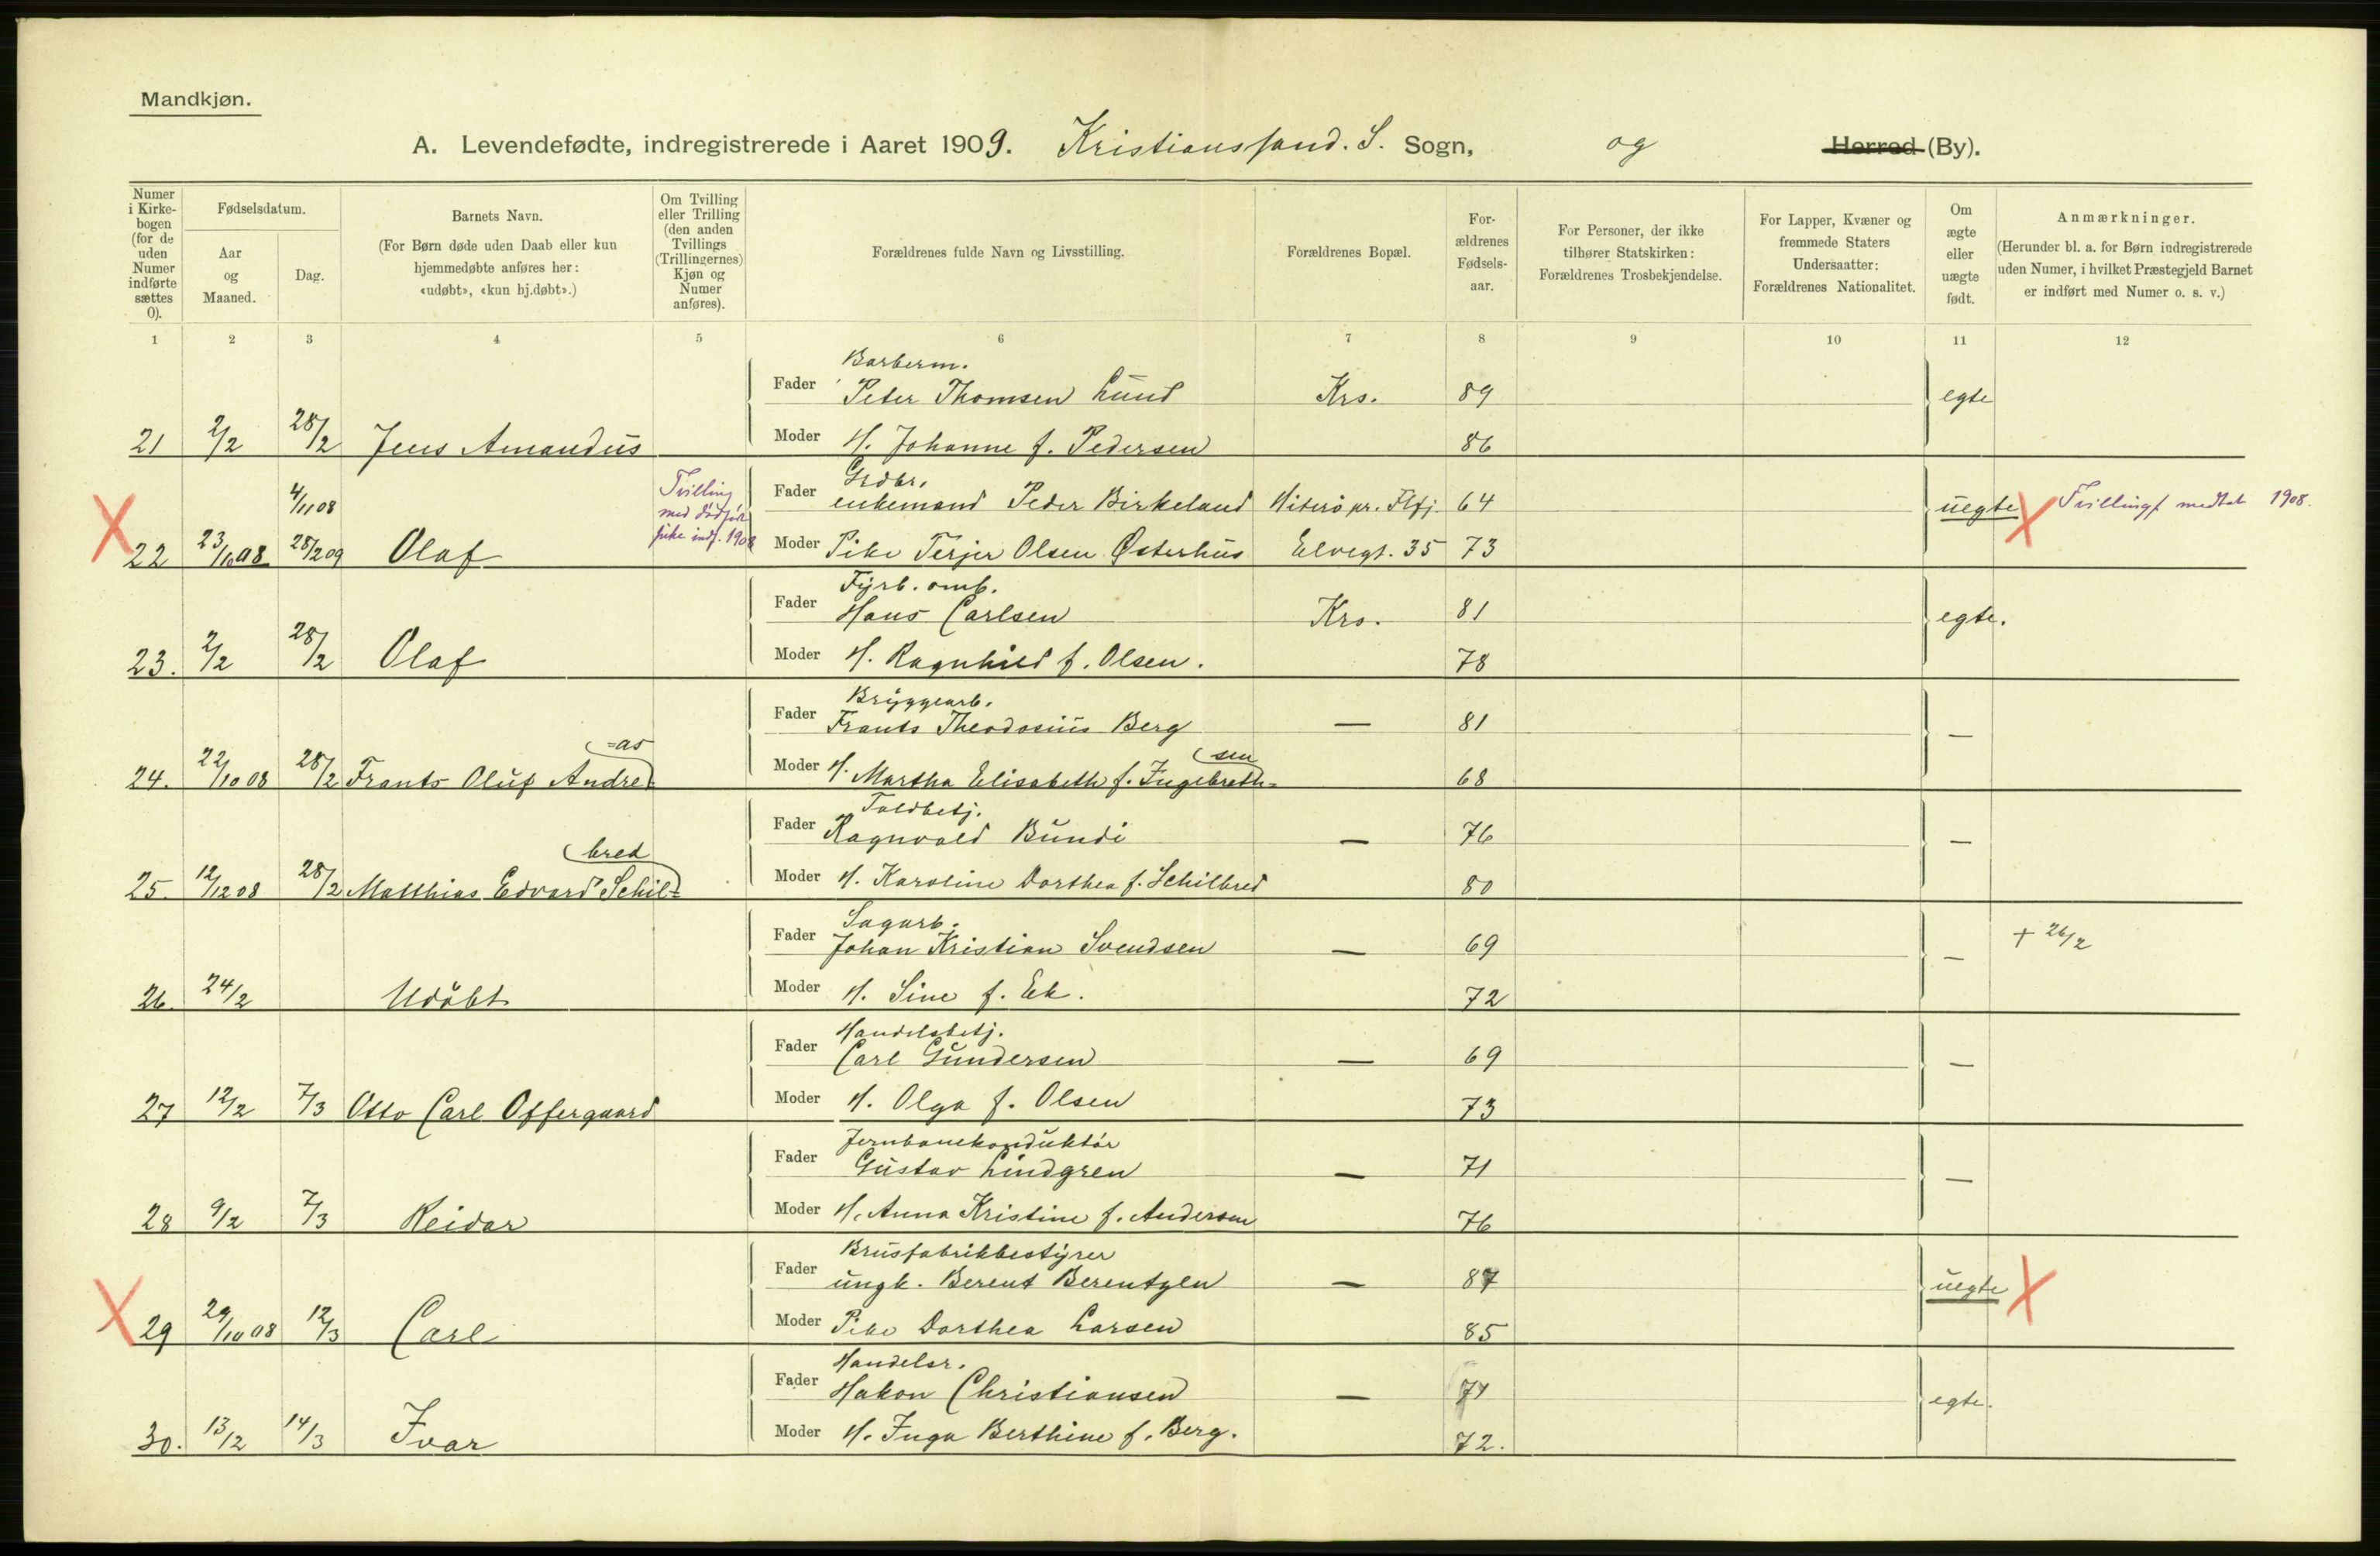 Mandkjøn.
A. Levendefødte, indregistrerede i Aaret 1909. Kristianssand. S. Sogn, og Herred (By).
Numer i Kirkebogen (for de uden Numer indførte sættes 0).
Fødselsdatum.
Aar og Maaned.
Dag.
Barnets Navn.
(For Børn døde uden Daab eller kun hjemmedøbte anføres her: «udøbt», «kun hj.døbt».)
Om Tvilling eller Trilling (den anden Tvillings (Trillingernes) Kjøn og Numer anføres).
Forældrenes fulde Navn og Livsstilling.
Forældrenes Bopæl.
Forældrenes Fødselsaar.
For Personer, der ikke tilhører Statskirken: Forældrenes Trosbekjendelse.
For Lapper, Kvæner og fremmede Staters Undersaatter: Forældrenes Nationalitet.
Om ægte eller uægte født.
Anmærkninger.
(Herunder bl. a. for Børn indregistrerede uden Numer, i hvilket Præstegjeld Barnet er indført med Numer o. s. v.)
1 2 3 4 5 6 7 8 9 10 11 12
Barberm.
Fader Peter Thomsen Lund Krs. 89 egte
21 2/2 28/2 Jens Amandus Moder H. Johanne f. Pedersen 86
4/11 08 Tvilling med dødfødt pike indf. 1908
Grdbr.
Fader enkemand Peder Birkeland Hiterö pr. Flfj. 64 uegte Tvillingf medtat 1908.
22 23/10 08 28/2 09 Olaf Moder Pike Terjer Olsen Østerhus Elvegt. 35 73
Fyrb. omb.
Fader Hans Carlsen Krs. 81 egte.
23. 2/2 28/2 Olaf Moder H. Ragnhild f. Olsen. 78
Bryggearb.
Fader Frants Theodosius Berg — 81 —
24. 22/10 08 28/2 Frants Oluf Andre=as Moder H. Martha Elisabeth f. Ingebreth=sen 68
Toldbetj.
Fader Ragnvald Bundi — 76 —
25. 12/12 08 28/2 Matthias Edvard Schil=bred Moder H. Karoline Dorthea f. Schilbred 80
Sagarb.
Fader Johan Kristian Svendsen — 69 — + 26/2
26. 24/2 Udöbt Moder H. Sine f. Ek. 72
Handelsbetj.
Fader Carl Gundersen — 69 —
27 12/2 7/3 Otto Carl Offergaard Moder H. Olga f. Olsen 73
Jernbanekonduktör
Fader Gustav Lindgren — 71 —
28 9/2 7/3 Reidar Moder H. Anna Kristine f. Andersen 76
Brusfabrikbestyrer
Fader ungk. Berent Berentzen — 87 uegte
29 29/10 08 12/3 Carl Moder Pike Dorthea Larsen 85
Handelsr.
Fader Hakon Christiansen — 71 egte.
30. 13/2 14/3 Ivar Moder H. Inga Berthine f. Berg. 72.